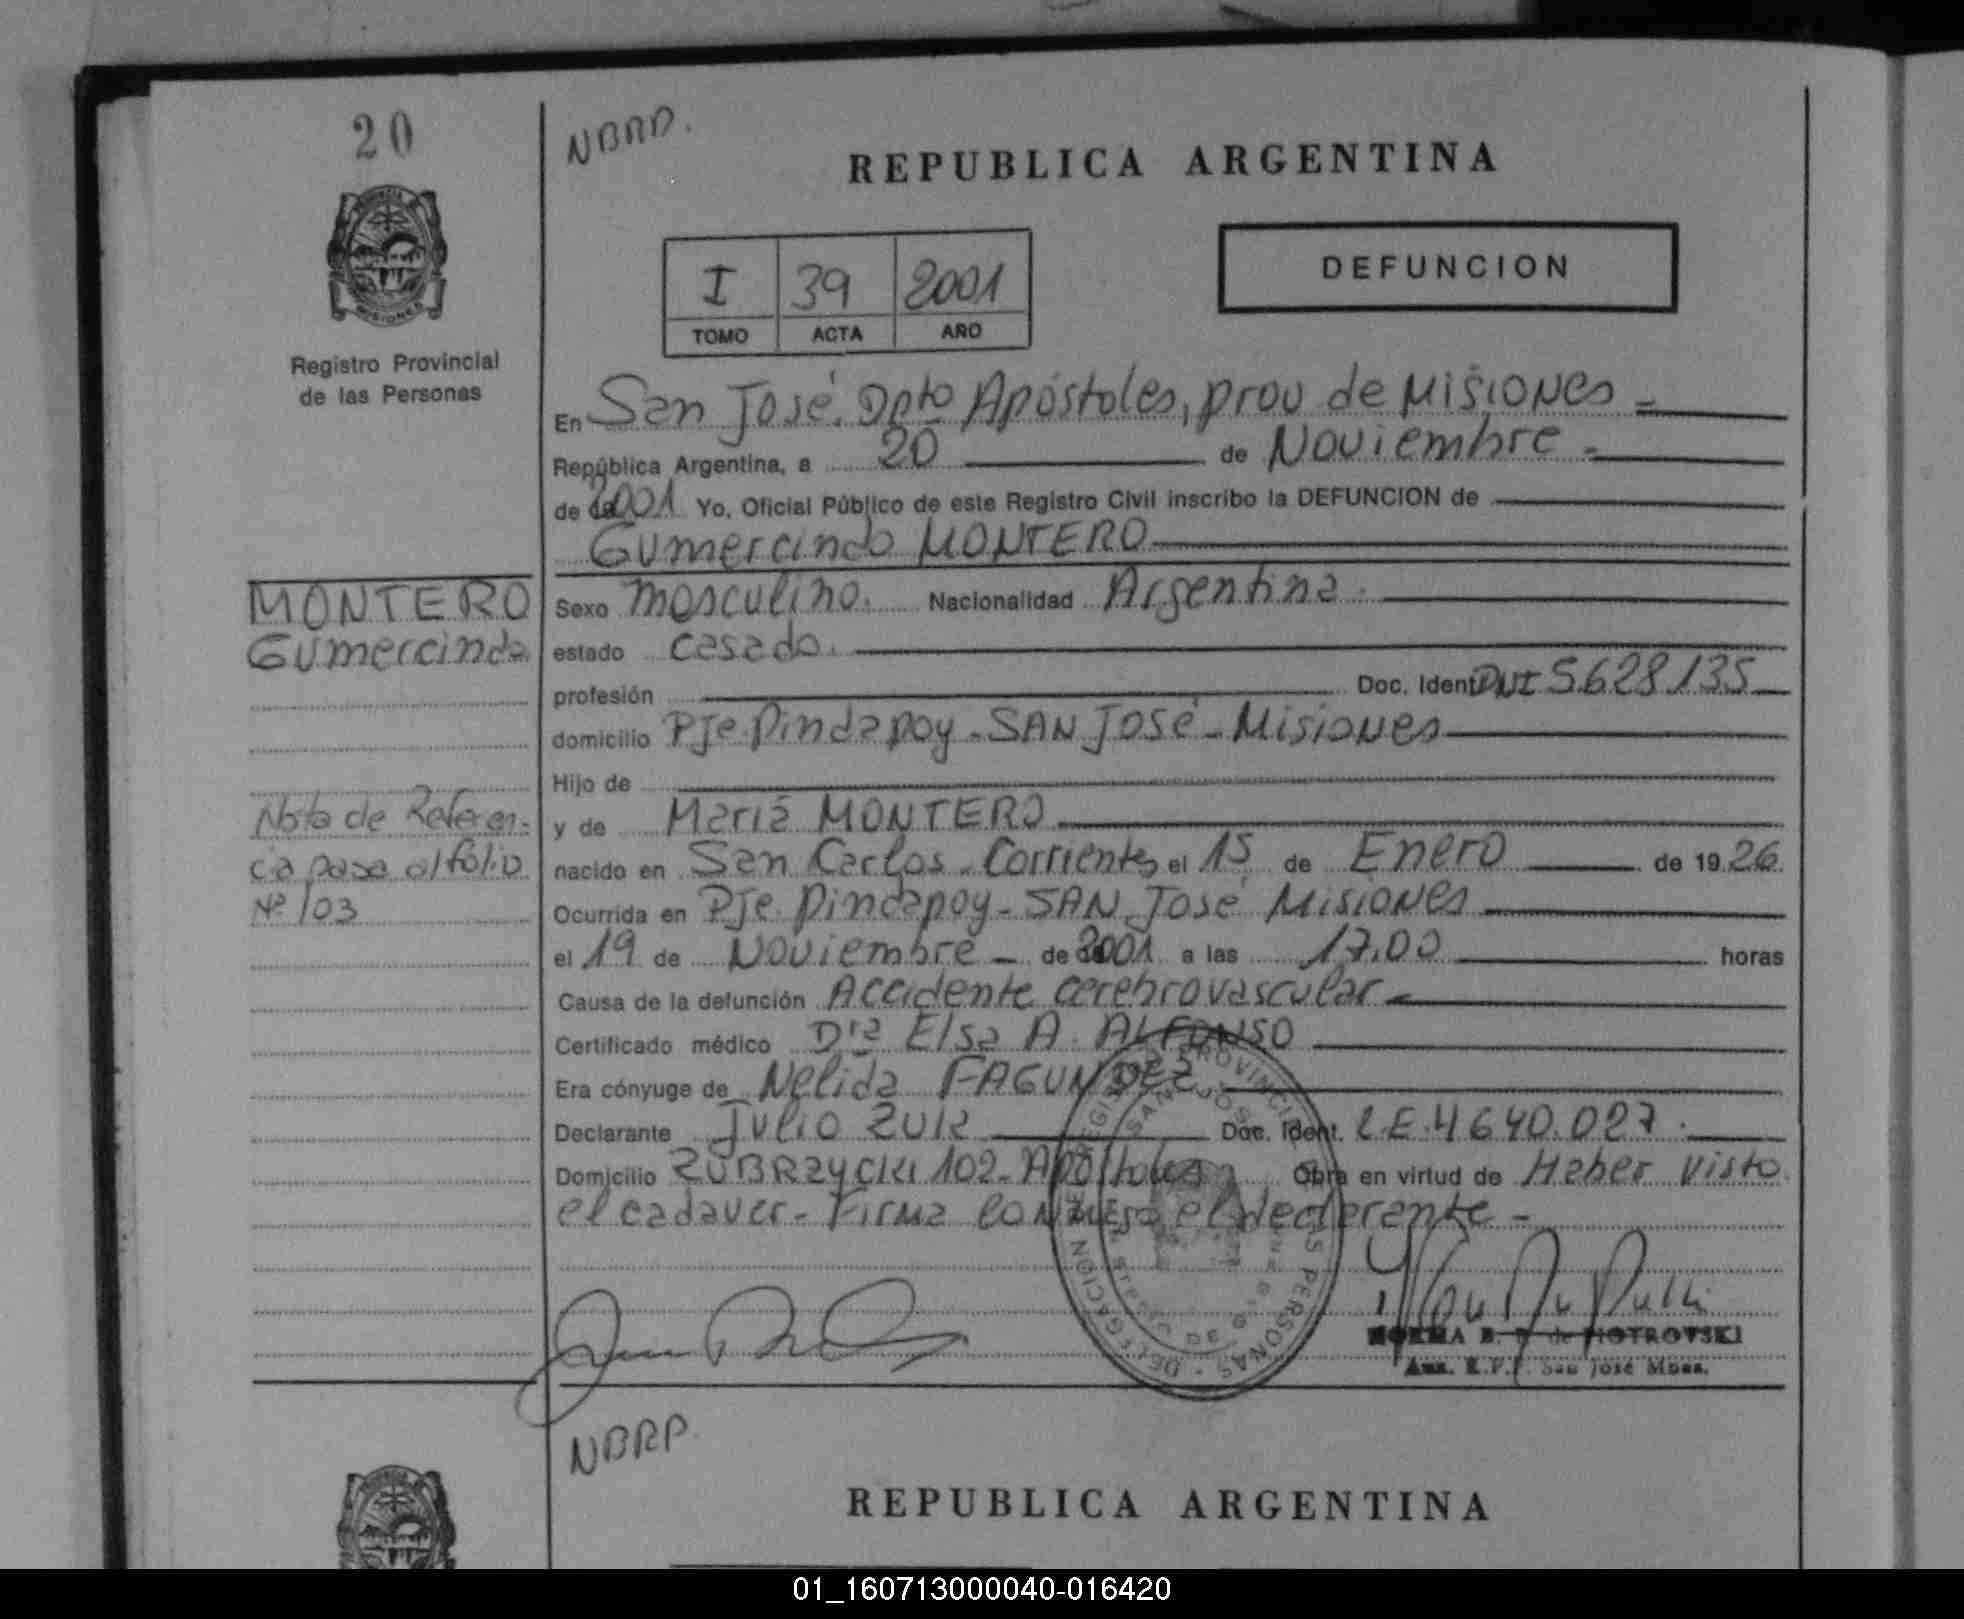 20
NBRP.
REPUBLICA ARGENTINA
MISIONES
Registro Provincial
de las Personas
I 39 2001
TOMO ACTA AÑO
DEFUNCION
En San José. Dpto Apóstoles, prov de Misiones -
República Argentina, a 20 de Noviembre -
de 2001 Yo, Oficial Público de este Registro Civil inscribo la DEFUNCION de
Gumercindo MONTERO
MONTERO
Gumercindo
Sexo masculino. Nacionalidad Argentina.
estado casado.
profesión Doc. Ident. DNI 5.628.135
domicilio Pje Pindapoy - SAN José - Misiones
Hijo de
y de María MONTERO
nacido en San Carlos - Corrientes el 15 de Enero de 1926
Nota de Referen-
cia pasa al folio
Nº 103
Ocurrida en Pje Pindapoy - SAN José Misiones
el 19 de Noviembre - de 2001 a las 17.00 horas
Causa de la defunción Accidente cerebrovascular -
Certificado médico Dra Elsa A. ALFONSO
Era cónyuge de Nelida FAGUNDEZ
Declarante Julio ZUK Doc. Ident. L.E. 4640.027.
Domicilio ZUBRZYCKI 102 - Apóstoles Obra en virtud de Haber visto
el cadaver - Firma conmigo el declarante -
DELEGACION REGISTRO PROVINCIAL DE LAS PERSONAS
SAN JOSE
NORMA B. R. de PIOTROVSKI
Aux. R.P.P. San José Mnes.
NBRP.
REPUBLICA ARGENTINA
01_160713000040-016420